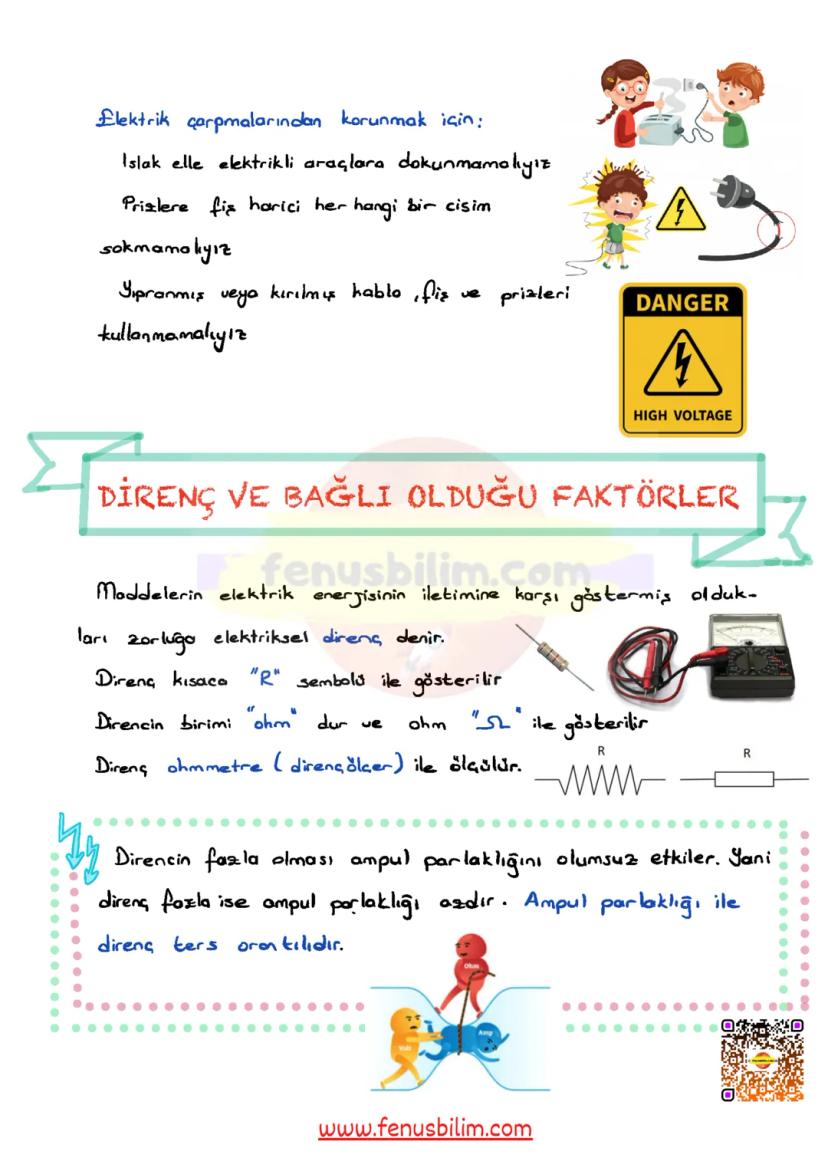 Elektrik çarpmalarından korunmak için:
Islak elle elektrikli araçlara dokunmamalıyız
Prizlere fiş harici her hangi bir cisim
sokmamalıyız
Yıpranmış veya kırılmış kablo, fiş ve prizleri
kullanmamalıyız
DANGER
HIGH VOLTAGE
DİRENÇ VE BAĞLI OLDUĞU FAKTÖRLER
fenusbilim.com
Maddelerin elektrik enerjisinin iletimine karşı göstermiş olduk-
ları zorluğa elektriksel direnç denir.
Direnç kısaca "R" sembolü ile gösterilir
Direncin birimi "ohm" dur ve ohm "Ω" ile gösterilir
Direnç ohmmetre (dirençölçer) ile ölçülür.
R
R
Direncin fazla olması ampul parlaklığını olumsuz etkiler. Yani
direnç fazla ise ampul parlaklığı azdır. Ampul parlaklığı ile
direnç ters orantılıdır.
Ohm
Amp
Volt
www.fenusbilim.com